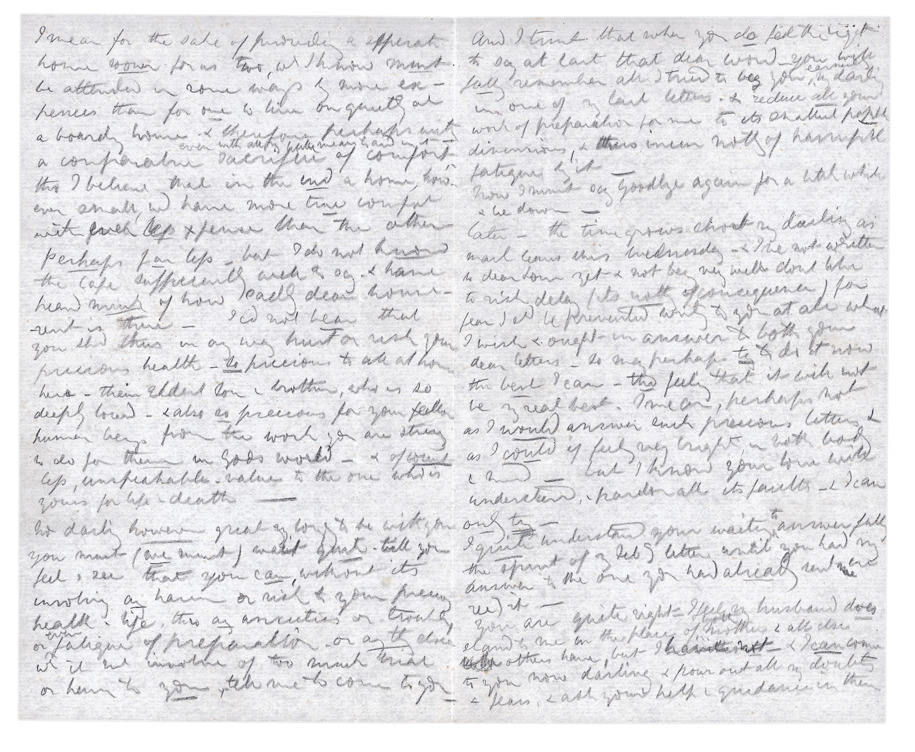 I mean for the sake of providing a separate
home now for us two, wd I know must
be attended in some ways by more ex-
penses than for one to live on quietly at
a boardg house & therefore perhaps with
even with strictly
a comparative sacrifice of comfort
tho I believe that in the end a home, how-
ever small, wd have more true comfort
with much less expense than the other
perhaps far less - but I do not know
the case sufficiently well to say & have
heard much of how sadly dear house-
rent is there - I cd not bear that
you shd thus in any way hurt or risk your
precious health - so precious to all at home
here - their eldest son & brother, who is so
deeply loved - & also so precious for your fellow
human beings from the work you are strong
to do for them in Gods world - & of course
less, unspeakable value to the one who is
yours for life & death
So darling however great my longg to be with you
you must (we must) wait quietly till you
feel & see that you can, without its
involving any harm or risk to your precious
health & life, thro any anxieties or troubles
or even fatigue of preparation or anyth else
wh it wd involve of too much trial
or harm to you, tell me to come to you
And I trust that when you do feel the right
to say at last that dear word - you will
fully remember all I tried to beg you, my darling
earnestly
in one of my last letters & reduce all your
work of preparation for me to its smallest possible
dimensions, & thus incur noth of harmful
fatigue by it -
Now I must say goodbye again for a little while
& lie down -
Later - the time grows short my darling as
mail leaves this Wednesday - & I've not written
to dear home yet & not beg very well & dont like
to risk delay (its noth of consequence) for
fear I shd be prevented writg to you at all what
I wish & ought in answer to both your
dear letters - so may perhaps try to do it now
the best I can - tho feelg that it will not
be my real best. I mean, perhaps not
as I would answer such precious letters &
as I could if feelg very bright in both body
& mind - but I know your love will
understand, & pardon all its faults - & I can
only try -
I quite understand your waiting to answer fully
the spirit of my letter until you had my
answer to the one you had already sent me
recd it -
you are quite right - I feel my husband does
stand to me in the place of mother & all else
others have, but I & I can come
to you now darling & pour out all my doubts
& fears, & ask your help & guidance in them